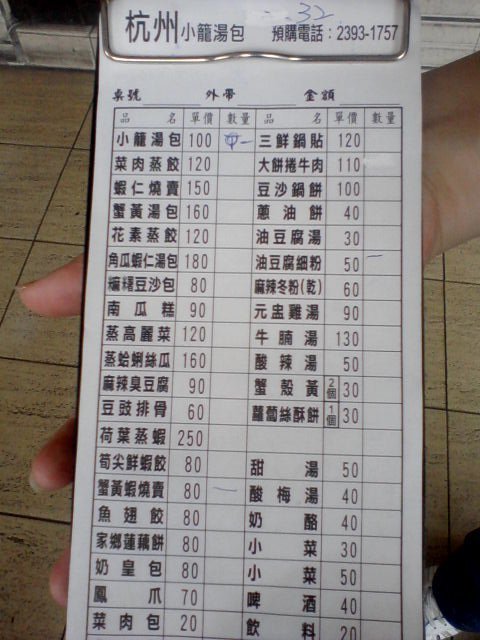 杭州小籠湯包 預購電話：2393-1757
32
桌號 外帶 金額
品名 單價 數量 品名 單價 數量
小籠湯包 100 三鮮鍋貼 120
菜肉蒸餃 120 大餅捲牛肉 110
蝦仁燒賣 150 豆沙鍋餅 100
蟹黃湯包 160 蔥油餅 40
花素蒸餃 120 油豆腐湯 30
角瓜蝦仁湯包 180 油豆腐細粉 50
豆沙包 80 麻辣冬粉(乾) 60
南瓜糕 90 元盅雞湯 90
蒸高麗菜 120 牛腩湯 130
蒸蛤蜊絲瓜 160 酸辣湯 50
麻辣臭豆腐 90 蟹殼黃 2個 30
豆豉排骨 60 蘿蔔絲酥餅 1個 30
荷葉蒸蝦 250
筍尖鮮蝦餃 80 甜湯 50
蟹黃蝦燒賣 80 酸梅湯 40
魚翅餃 80 奶酪 40
家鄉蓮藕餅 80 小菜 30
奶皇包 80 小菜 50
鳳爪 70 啤酒 40
菜肉包 20 飲料 20